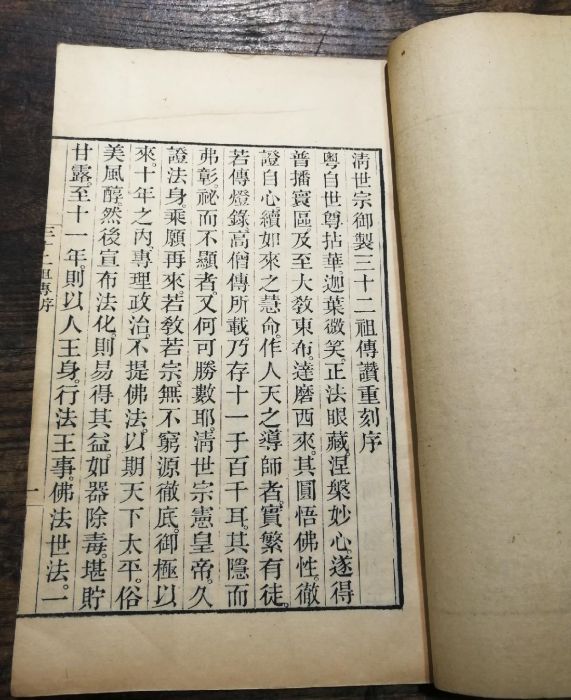 清世宗御製三十二祖傳讚重刻序
粵自世尊拈華。迦葉微笑。正法眼藏。涅槃妙心。遂得
普播寰區。及至大教東布。達磨西來。其圓悟佛性。徹
證自心。續如來之慧命。作人天之導師者。實繁有徒。
若傳燈錄。高僧傳所載。乃存十一于百千耳。其隱而
弗彰。祕而不顯者。又何可勝數耶。清世宗憲皇帝。久
證法身。乘願再來。若教若宗。無不窮源徹底。御極以
來。十年之內。專理政治。不提佛法。以期天下太平。俗
美風醇。然後宣布法化。則易得其益。如器除毒。堪貯
甘露。至十一年。則以人王身。行法王事。佛法世法。一
三十二祖傳序 一